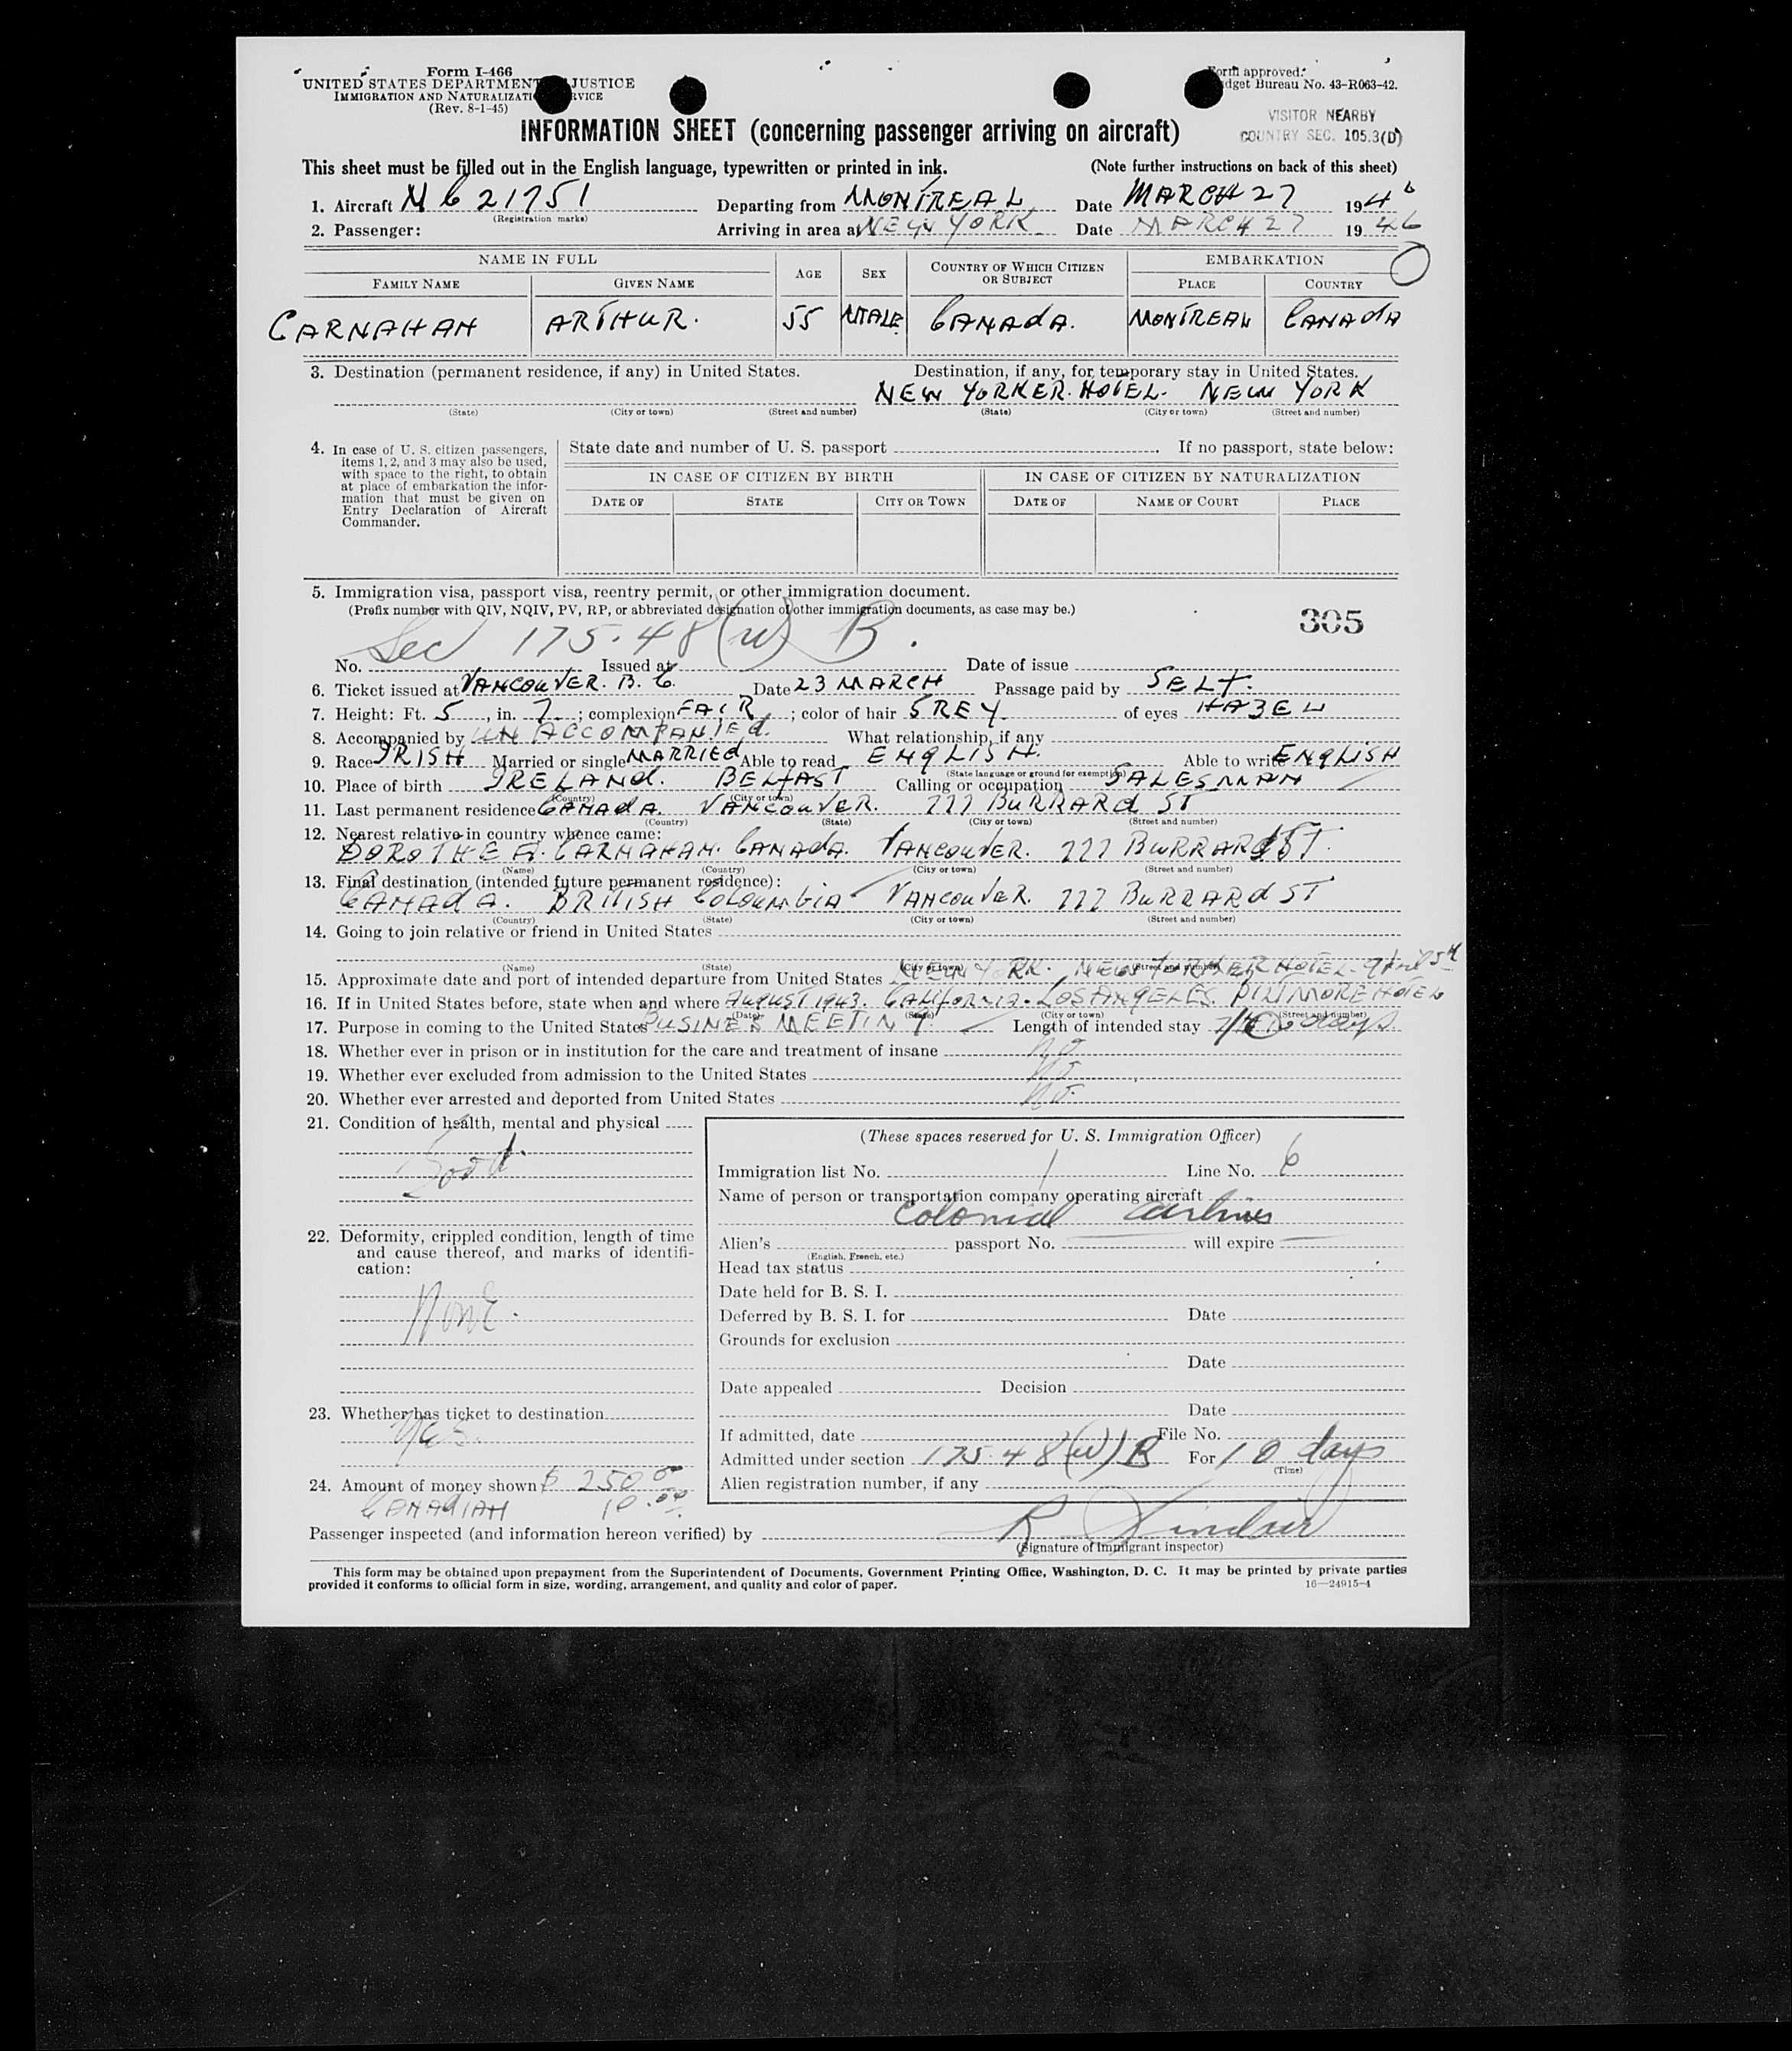 Form I-466
UNITED STATES DEPARTMENT JUSTICE
IMMIGRATION AND NATURALIZATI RVICE
(Rev. 8-1-45)
Form approved.
dget Bureau No. 43-R063-42.
VISITOR NEARBY
COUNTRY SEC. 105.3(D)
INFORMATION SHEET (concerning passenger arriving on aircraft)
This sheet must be filled out in the English language, typewritten or printed in ink. (Note further instructions on back of this sheet)
1. Aircraft NC 21751 Departing from MONTREAL Date MARCH 27 1946
(Registration marks)
2. Passenger: Arriving in area at NEW YORK Date MARCH 27 1946
NAME IN FULL AGE SEX COUNTRY OF WHICH CITIZEN OR SUBJECT EMBARKATION
FAMILY NAME GIVEN NAME PLACE COUNTRY
CARNAHAN ARTHUR. 55 MALE CANADA. MONTREAL CANADA
3. Destination (permanent residence, if any) in United States. Destination, if any, for temporary stay in United States.
NEW YORKER HOTEL. NEW YORK
(State) (City or town) (Street and number) (State) (City or town) (Street and number)
4. In case of U. S. citizen passengers, items 1, 2, and 3 may also be used, with space to the right, to obtain at place of embarkation the information that must be given on Entry Declaration of Aircraft Commander.
State date and number of U. S. passport If no passport, state below:
IN CASE OF CITIZEN BY BIRTH IN CASE OF CITIZEN BY NATURALIZATION
DATE OF STATE CITY OR TOWN DATE OF NAME OF COURT PLACE
5. Immigration visa, passport visa, reentry permit, or other immigration document.
(Prefix number with QIV, NQIV, PV, RP, or abbreviated designation of other immigration documents, as case may be.)
305
Sec 175.48(w) B.
No. Issued at Date of issue
6. Ticket issued at VANCOUVER. B.C. Date 23 MARCH Passage paid by SELF.
7. Height: Ft. 5, in. 7; complexion FAIR; color of hair GREY of eyes HAZEL
8. Accompanied by UNACCOMPANIED. What relationship, if any
9. Race IRISH Married or single MARRIED Able to read ENGLISH. Able to write ENGLISH
(State language or ground for exemption)
10. Place of birth IRELAND. BELFAST Calling or occupation SALESMAN
(Country) (City or town)
11. Last permanent residence CANADA. VANCOUVER. 777 BURRARD ST
(Country) (State) (City or town) (Street and number)
12. Nearest relative in country whence came:
DOROTHEA. CARNAHAN. CANADA. VANCOUVER. 777 BURRARD ST.
(Name) (Country) (City or town) (Street and number)
13. Final destination (intended future permanent residence):
CANADA. BRITISH COLOUMBIA VANCOUVER. 777 BURRARD ST
(Country) (State) (City or town) (Street and number)
14. Going to join relative or friend in United States
(Name) (State) (City or town) (Street and number)
15. Approximate date and port of intended departure from United States NEW YORK. NEW YORKER HOTEL
16. If in United States before, state when and where AUGUST 1943. CALIFORNIA. LOS ANGELES. BILTMORE HOTEL
(Date) (State) (City or town) (Street and number)
17. Purpose in coming to the United States BUSINES MEETING. Length of intended stay 10 days.
18. Whether ever in prison or in institution for the care and treatment of insane NO
19. Whether ever excluded from admission to the United States NO
20. Whether ever arrested and deported from United States NO.
21. Condition of health, mental and physical
Good.
22. Deformity, crippled condition, length of time and cause thereof, and marks of identification:
NONE.
23. Whether has ticket to destination
YES.
24. Amount of money shown $ 250 00
CANADIAN 10.00
(These spaces reserved for U. S. Immigration Officer)
Immigration list No. 1 Line No. 6
Name of person or transportation company operating aircraft
Colonial Airlines
Alien's passport No. will expire
(English, French, etc.)
Head tax status
Date held for B. S. I.
Deferred by B. S. I. for Date
Grounds for exclusion
Date
Date appealed Decision
Date
If admitted, date File No.
Admitted under section 175.48(w) B For 10 days
(Time)
Alien registration number, if any
Passenger inspected (and information hereon verified) by R Sinclair
(Signature of immigrant inspector)
This form may be obtained upon prepayment from the Superintendent of Documents, Government Printing Office, Washington, D. C. It may be printed by private parties
provided it conforms to official form in size, wording, arrangement, and quality and color of paper. 16—24915-4